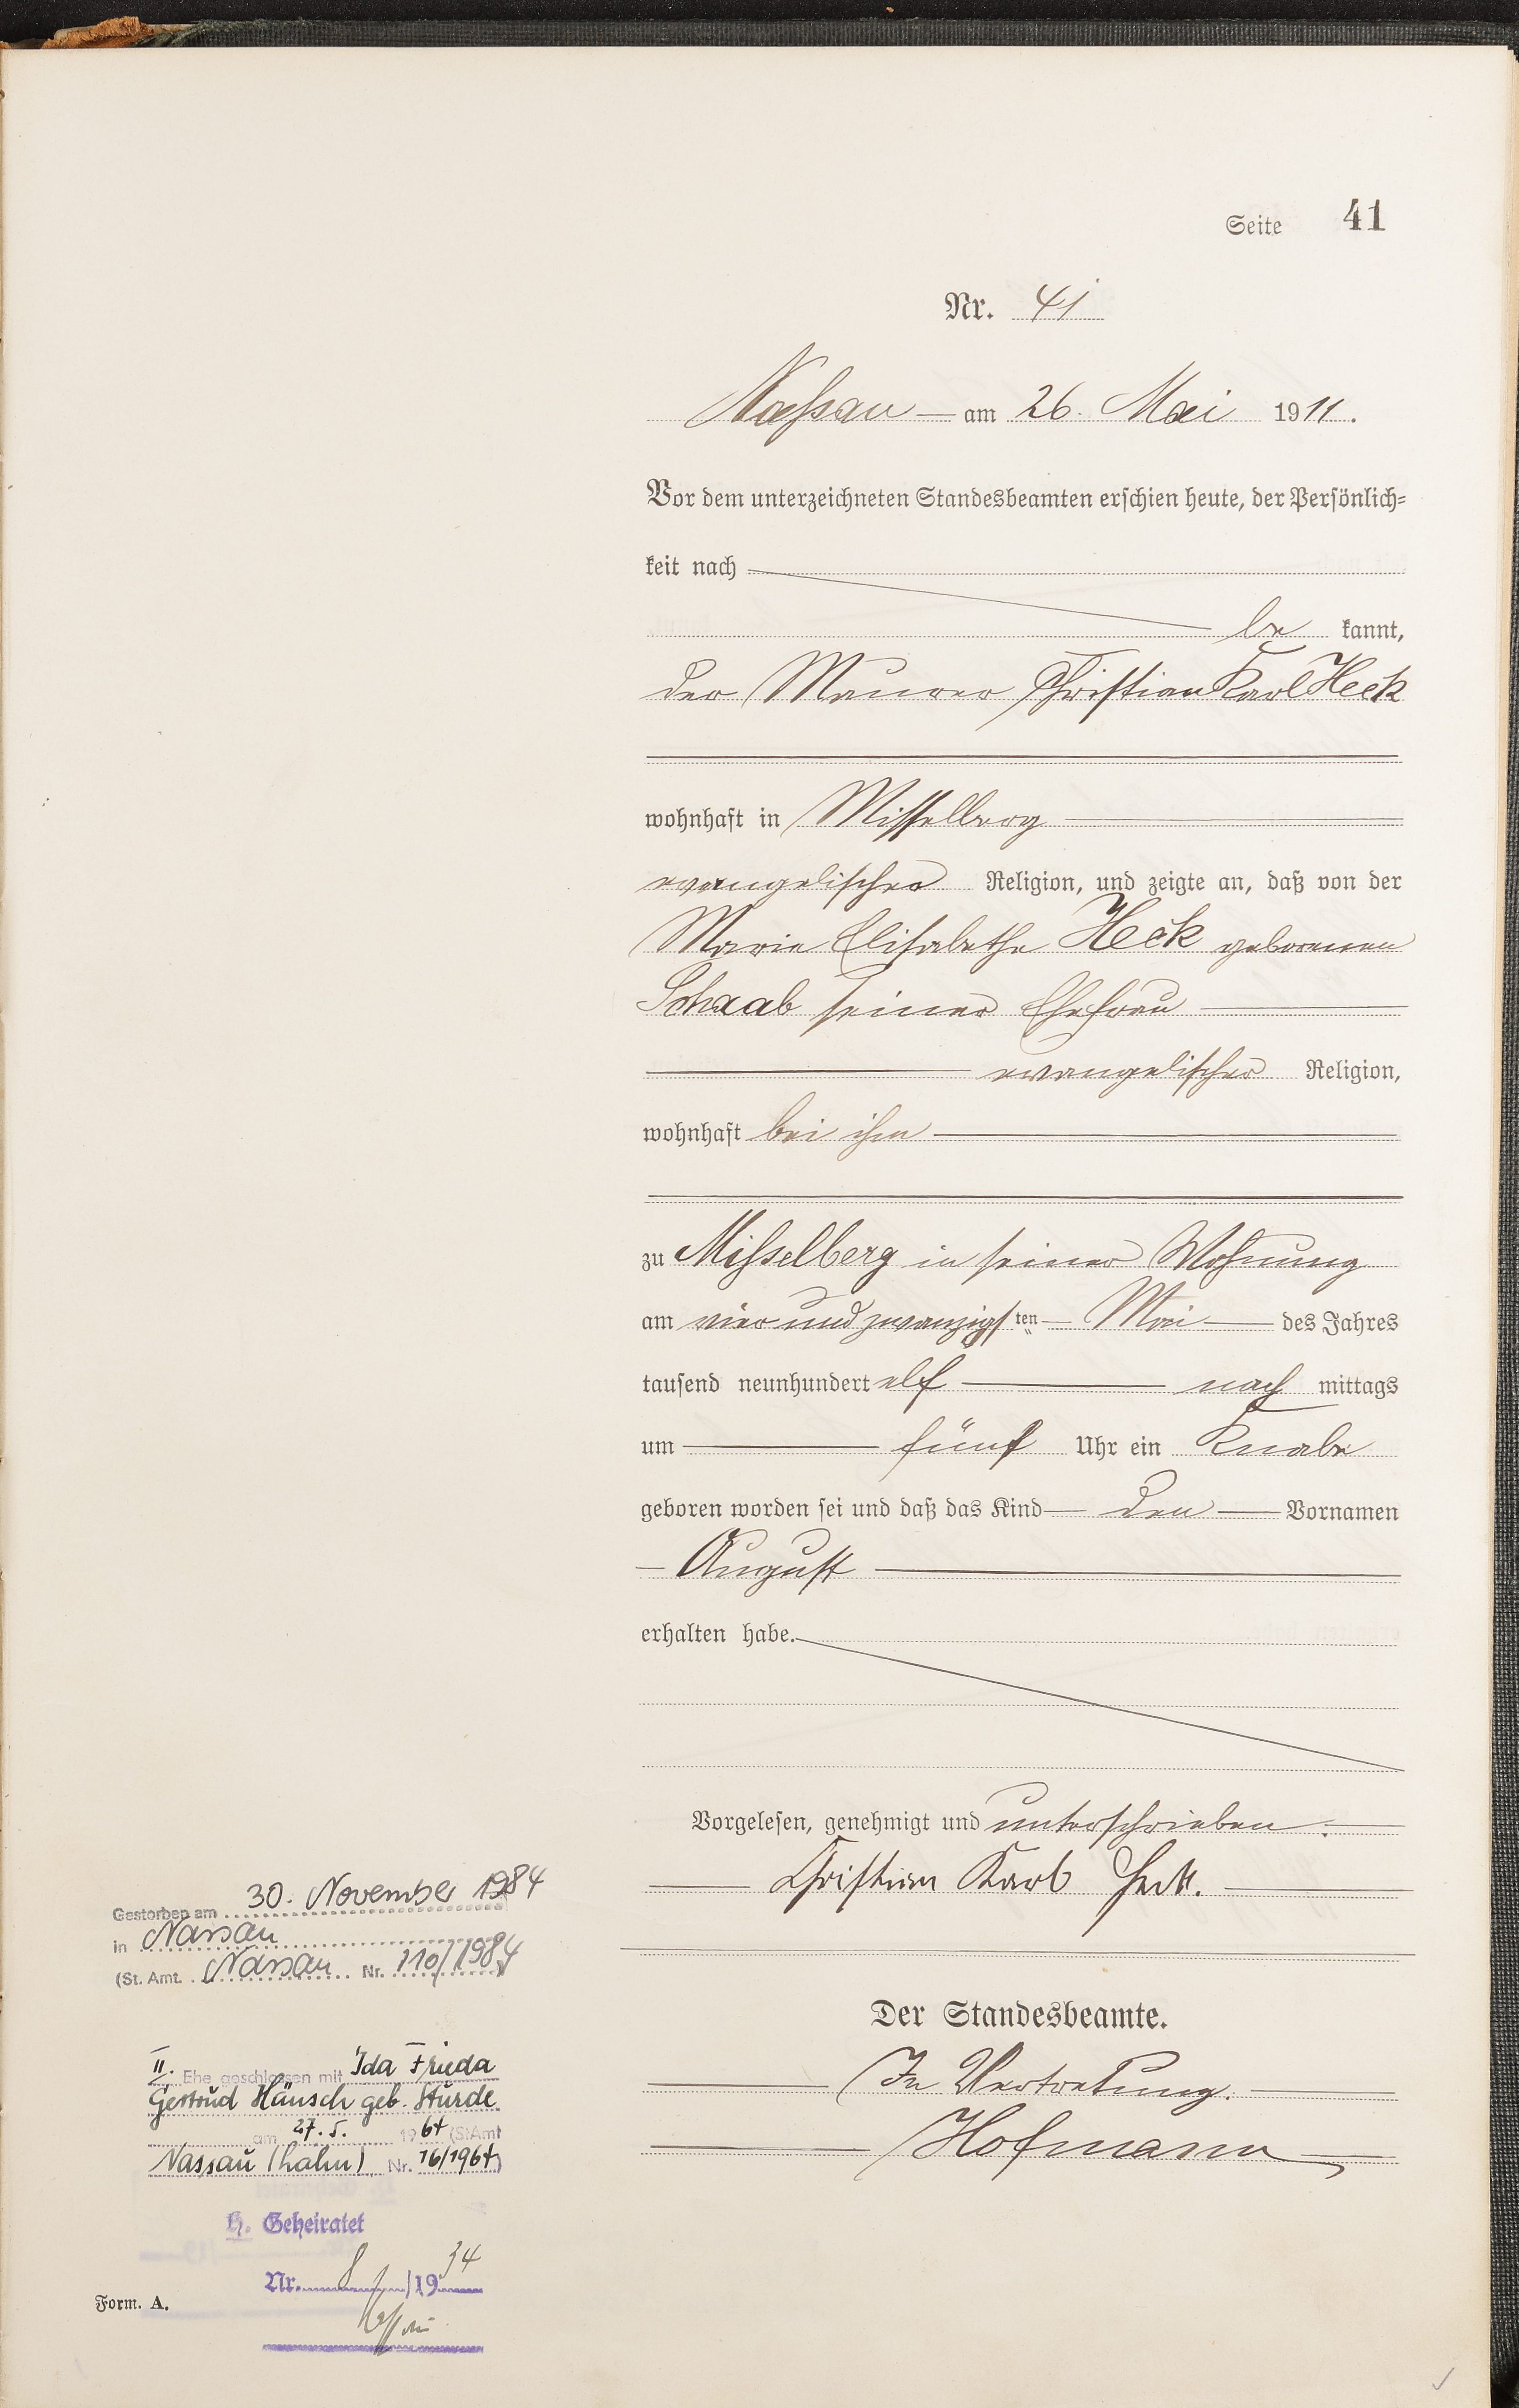 Seite 41
Nr. 41
Nassau am 26. Mai 1911.
Vor dem unterzeichneten Standesbeamten erschien heute, der Persönlich-
keit nach
be kannt,
der Maurer Christian Karl Heck
wohnhaft in Misselberg
evangelischer Religion, und zeigte an, daß von der
Marie Elisabethe Heck geborenen
Schaab seiner Ehefrau
evangelischer Religion,
wohnhaft bei ihm
zu Misselberg in seiner Wohnung
am vier und zwanzigsten Mai des Jahres
tausend neunhundert elf nach mittags
um fünf Uhr ein Knabe
geboren worden sei und daß das Kind den Vornamen
August
erhalten habe.
Vorgelesen, genehmigt und unterschrieben.
Christian Karl Heck.
Der Standesbeamte.
In Vertretung.
Hofmann
Gestorben am 30. November 1984
in Nassau
(St. Amt. Nassau Nr. 110/1984
II. Ehe geschlossen mit Ida Frieda
Gertrud Hänsch geb. Sturde
am 27. 5. 1964 (StAmt
Nassau (Lahn) Nr. 16/1964)
H. Geheiratet
Nr. 8 /1934
Nassau
Form. A.